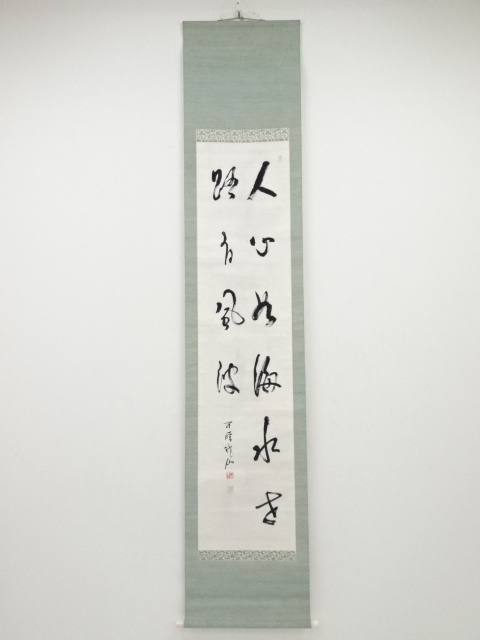 人心如海水世
路有風波